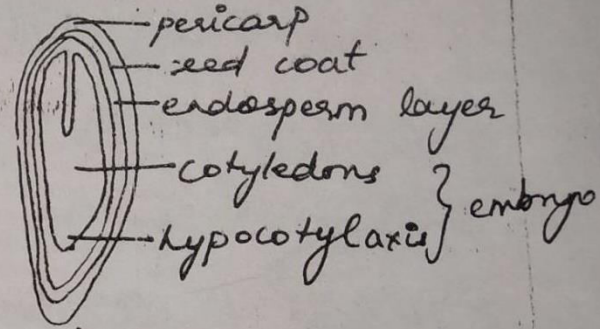 pericarp
seed coat
endosperm layer
cotyledons
hypocotyl axis
embryo